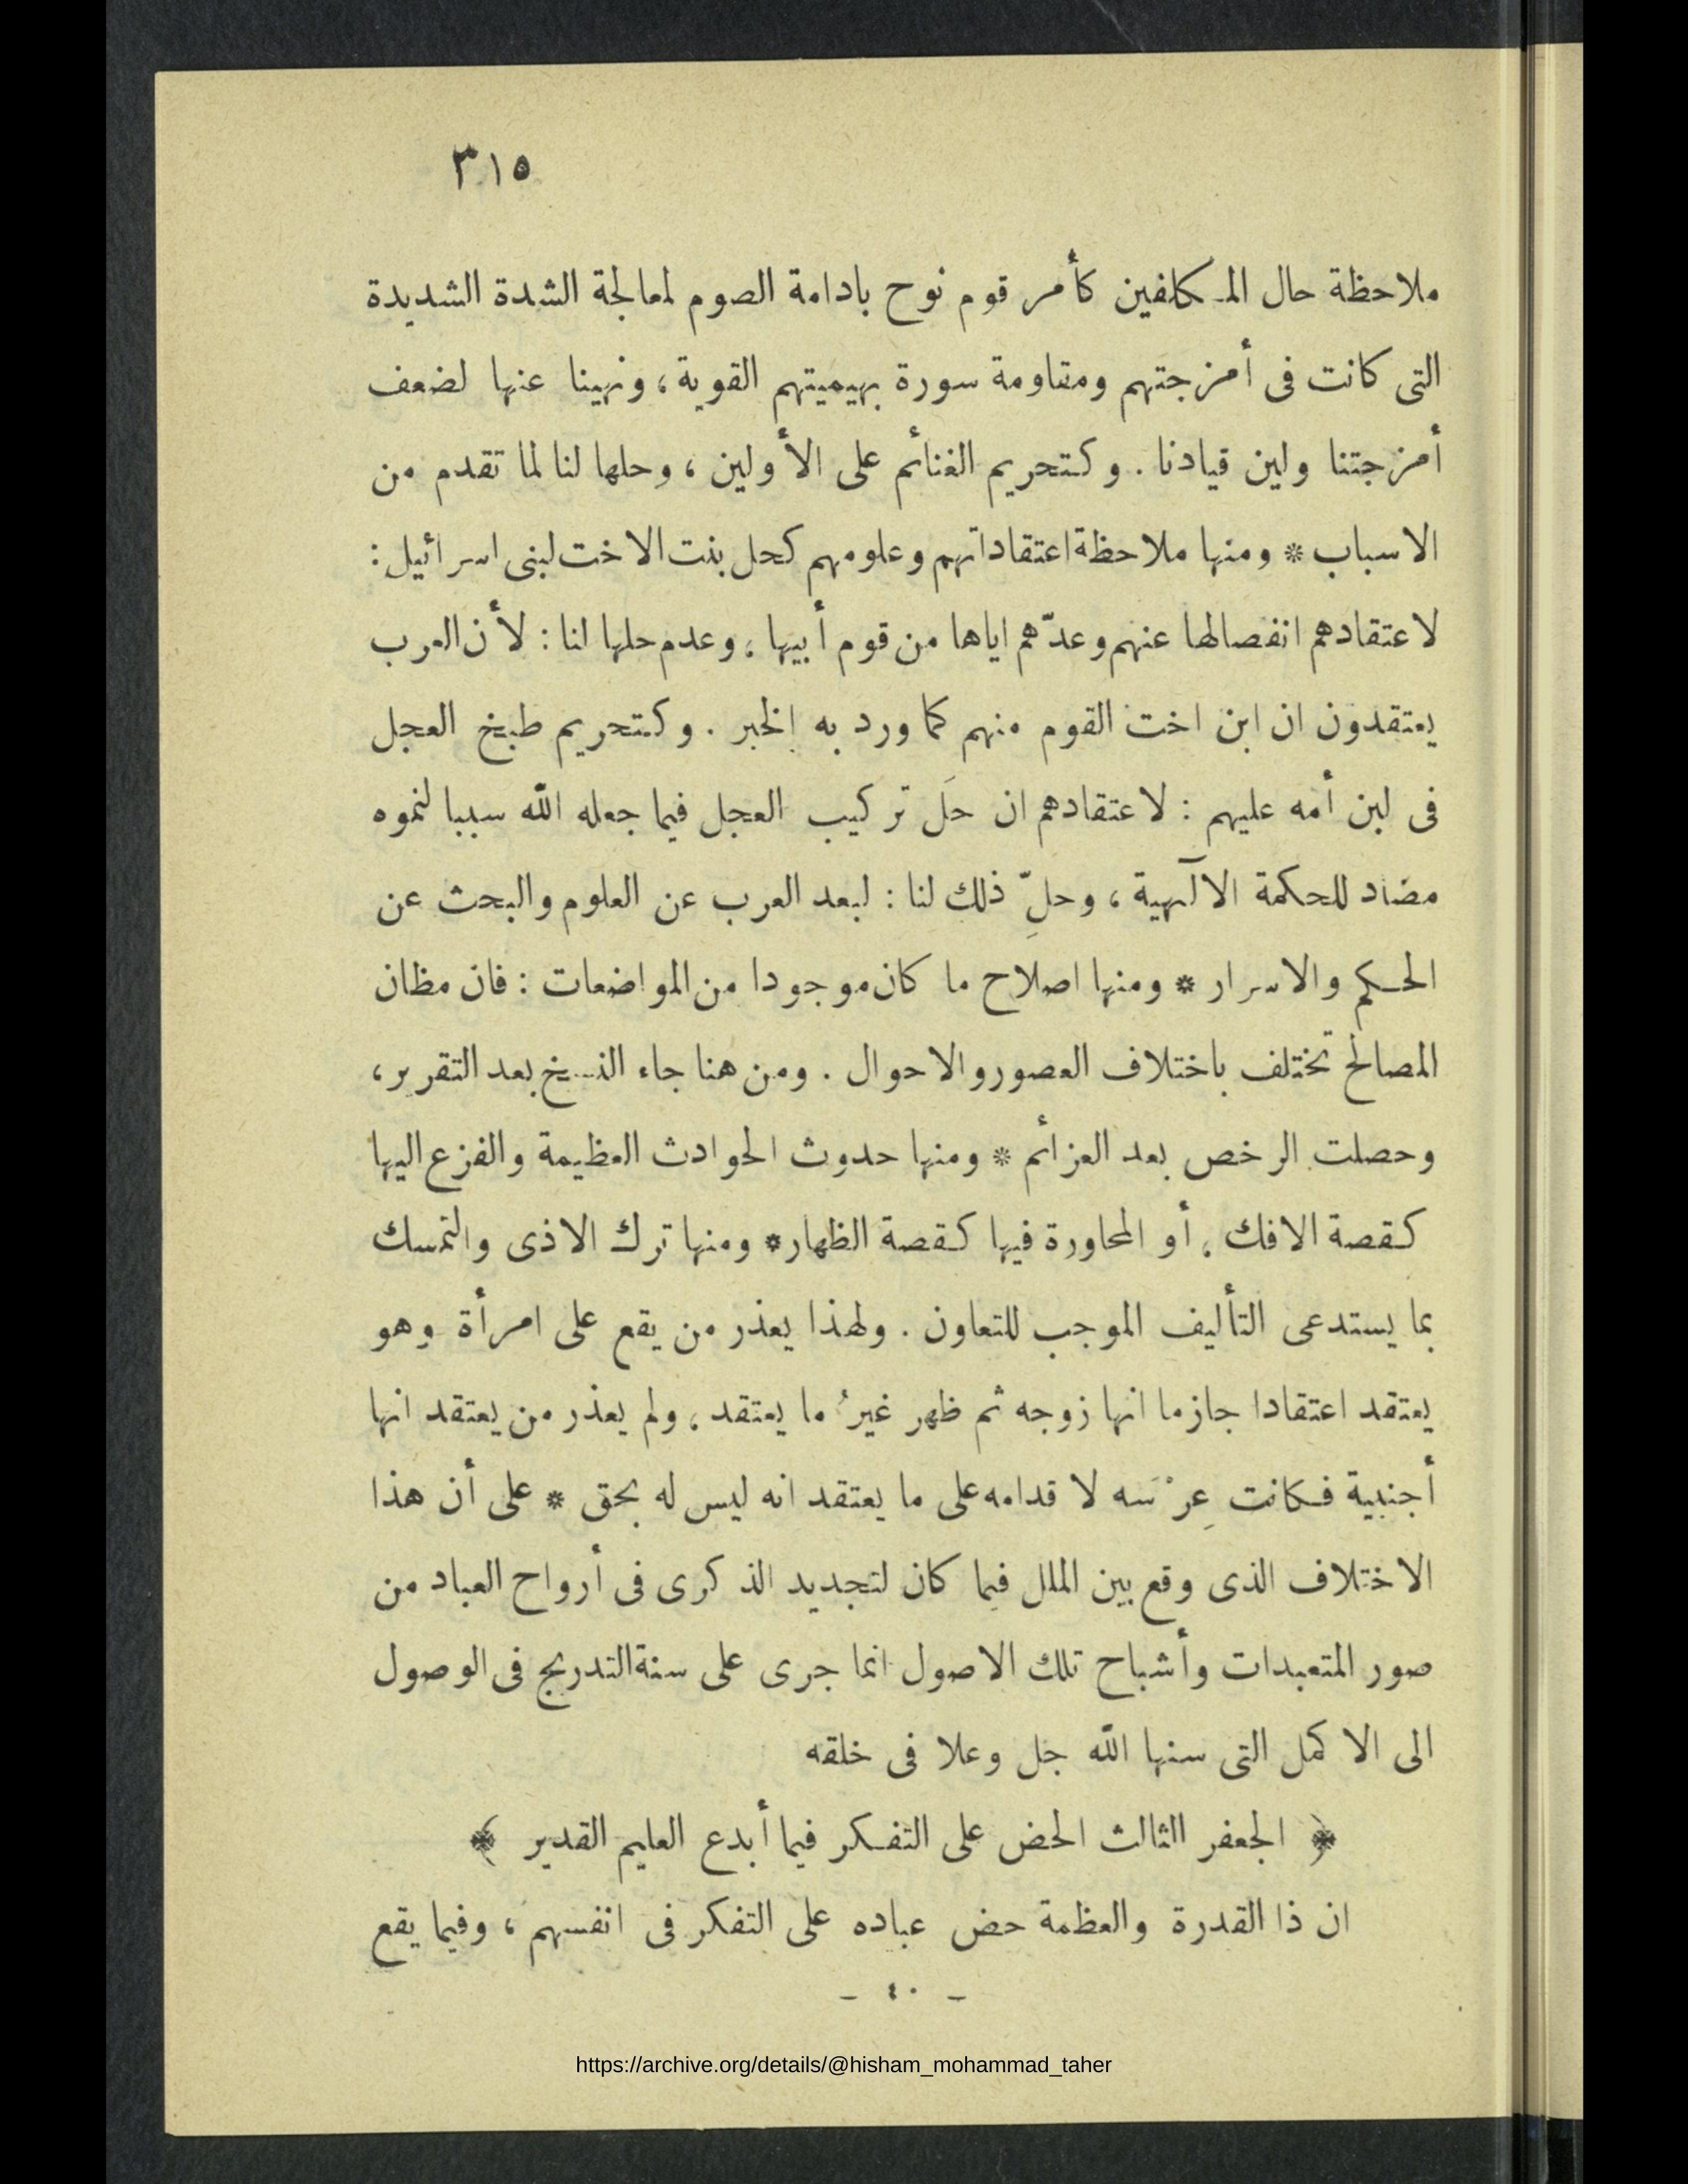 ٣١٥
ملاحظة حال المكلفين كأمر قوم نوح بادامة الصوم لمعالجة الشدة الشديدة
التى كانت فى أمزجتهم ومقاومة سورة بهيميتهم القوية ، ونهينا عنها لضعف
أمزجتنا ولين قيادنا . وكتحريم الغنائم على الأولين ، وحلها لنا لما تقدم من
الاسباب * ومنها ملاحظة اعتقاداتهم وعلومهم كحل بنت الاخت لبنى اسرائيل :
لاعتقادهم انفصالها عنهم وعدّهم اياها من قوم أبيها ، وعدم حلها لنا : لأن العرب
يعتقدون ان ابن اخت القوم منهم كما ورد به الخبر . وكتحريم طبخ العجل
فى لبن أمه عليهم : لاعتقادهم ان حَل تركيب العجل فيما جعله الله سببا لنموه
مضاد للحكمة الآلهية ، وحلِّ ذلك لنا : لبعد العرب عن العلوم والبحث عن
الحكم والاسرار * ومنها اصلاح ما كان موجودا من المواضعات : فان مظان
المصالح تختلف باختلاف العصور والاحوال . ومن هنا جاء النسخ بعد التقرير ،
وحصلت الرخص بعد العزائم * ومنها حدوث الحوادث العظيمة والفزع اليها
كقصة الافك ، أو المحاورة فيها كقصة الظهار * ومنها ترك الاذى والتمسك
بما يستدعى التأليف الموجب للتعاون . ولهذا يعذر من يقع على امرأة وهو
يعتقد اعتقادا جازما انها زوجه ثم ظهر غيرُ ما يعتقد ، ولم يعذر من يعتقد انها
أجنبية فكانت عِرْسَه لاقدامه على ما يعتقد انه ليس له بحق * على أن هذا
الاختلاف الذى وقع بين الملل فيما كان لتجديد الذكرى فى أرواح العباد من
صور المتعبدات وأشباح تلك الاصول انما جرى على سنة التدريج فى الوصول
الى الاكمل التى سنها الله جل وعلا فى خلقه
﴿ الجعفر الثالث الحض على التفكر فيما أبدع العليم القدير ﴾
ان ذا القدرة والعظمة حض عباده على التفكر فى انفسهم ، وفيما يقع
- ٤٠ -
https://archive.org/details/@hisham_mohammad_taher